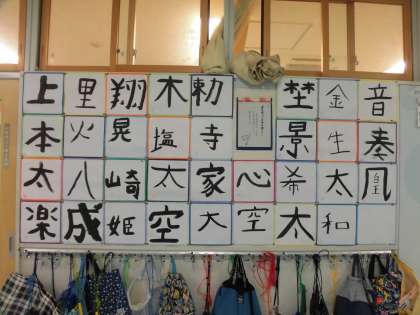 上里翔木勅埜金音
本火晃塩寺景生奏
太八崎太家心希太凰
楽成姫空大空太和